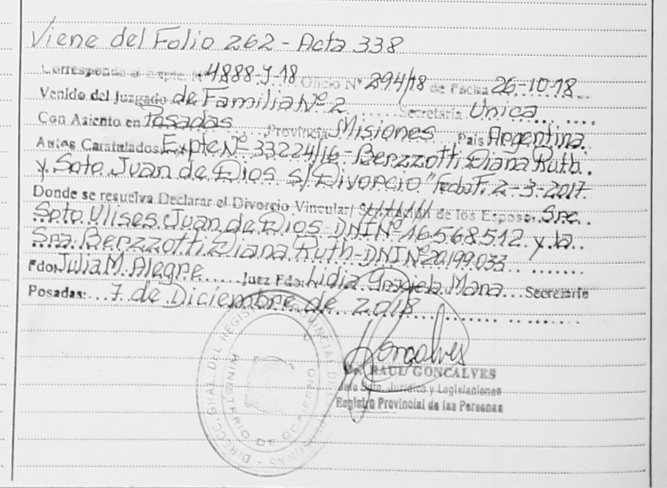 Viene del Folio 262 - Acta 338
Corresponde al Expte. Nº 4888-J-18 Oficio Nº 294/18 de Fecha 26-10-18
Venido del Juzgado de Familia Nº 2 Secretaría Unica
Con Asiento en Posadas Provincia Misiones País Argentina
Autos Caratulados Expte Nº 33224/16 - Berzzotti Diana Ruth
y Soto Juan de Dios s/ Divorcio" 2-3-2017
Donde se resuelva Declarar el Divorcio Vincular/ de los Esposos:
Soto Ulises Juan de Dios - DNI Nº 16.568.512 y la
Sra. Berzzotti Diana Ruth - DNI Nº 20.199.033
Fdo: Julia M. Alegre Juez Fdo: Lidia Mana Secretario
Posadas: 7 de Diciembre de 2018
Goncalves
RAUL GONCALVES
Jurídico y Legislaciones
Registro Provincial de las Personas